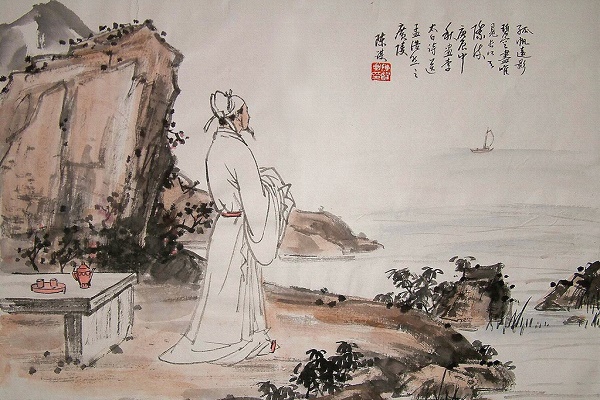 孤帆遠影
碧空盡唯
見長江天
際流
庚申中
秋画李
太白诗送
孟浩然之
廣陵